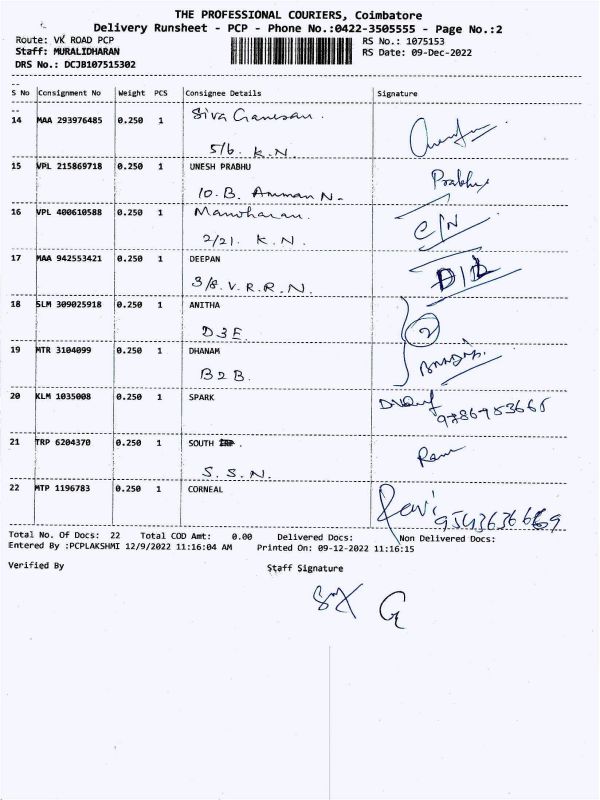 THE PROFESSIONAL COURIERS, Coimbatore
Delivery Runsheet - PCP - Phone No.:0422-3505555 - Page No.:2
Route: VK ROAD PCP RS No.: 1075153
Staff: MURALIDHARAN RS Date: 09-Dec-2022
DRS No.: DCJB107515302
S No Consignment No Weight PCS Consignee Details Signature
14 MAA 293976485 0.250 1 Siva Ganesan.
5/6. K.N.
15 VPL 215869718 0.250 1 UNESH PRABHU Prabhu
10. B. Amman N.
16 VPL 400610588 0.250 1 Manoharan. C/N
2/21. K.N.
17 MAA 942553421 0.250 1 DEEPAN
3/8. V.R.R.N.
18 SLM 309025918 0.250 1 ANITHA 2
D3E
19 MTR 3104099 0.250 1 DHANAM
B2B.
20 KLM 1035008 0.250 1 SPARK
21 TRP 6204370 0.250 1 SOUTH Ram
S.S.N.
22 MTP 1196783 0.250 1 CORNEAL Ravi
Total No. Of Docs: 22 Total COD Amt: 0.00 Delivered Docs: Non Delivered Docs:
Entered By :PCPLAKSHMI 12/9/2022 11:16:04 AM Printed On: 09-12-2022 11:16:15
Verified By Staff Signature